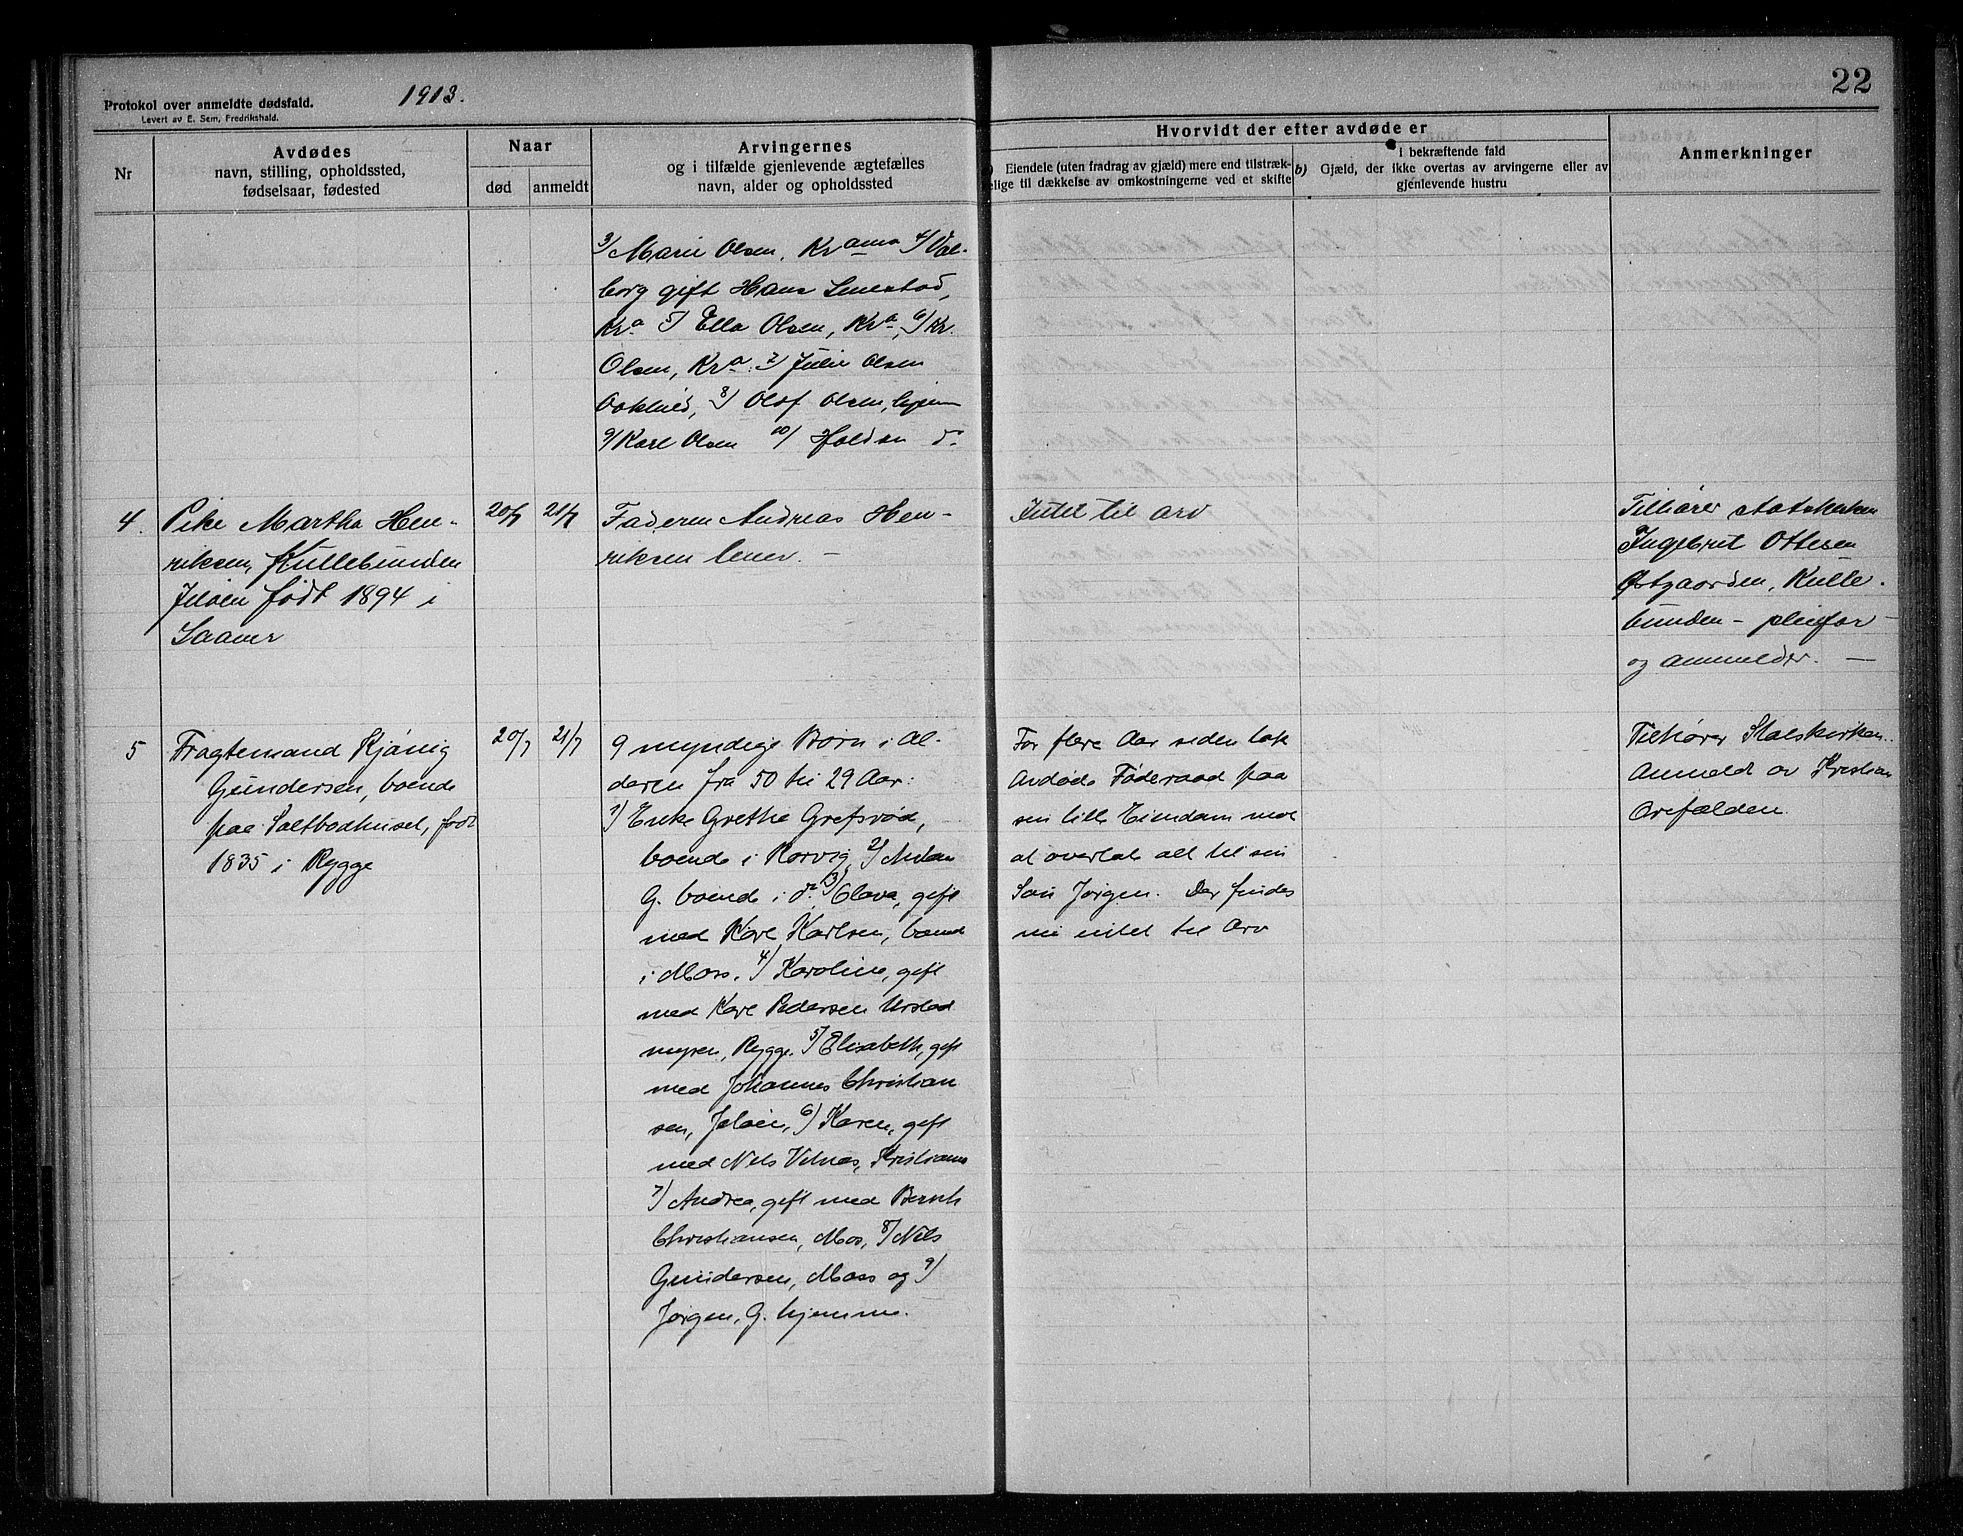 Protokol over anmeldte dødsfald.
Levert av E. Sem, Fredrikshald.
1913.
22
Nr
Avdødes
navn, stilling, opholdssted,
fødselsaar, fødested
Naar
død
anmeldt
Arvingernes
og i tilfælde gjenlevende ægtefælles
navn, alder og opholdssted
Hvorvidt der efter avdøde er
Eiendele (uten fradrag av gjæld) mere end tilstræk-
elige til dækkelse av omkostningerne ved et skifte
I bekræftende fald
b) Gjæld, der ikke overtas av arvingerne eller av
gjenlevende hustru
Anmerkninger
3/ Marie Olsen, Kr ania 4/ Val-
borg gift Hans
Kr a 5/ Ella Olsen, Kr a, 6/ Kr.
Olsen, Kr a. 7/ Julie Olsen
8/ Olof Olsen, hjem
9/ Karl Olsen 10/ Haldan do
4.
Pike Martha Hen-
riksen, Kullebunden
Jeløen født 1894 i
Saaner
20/7
21/7
Faderen Andreas Hen-
riksen lever. –
Intet til arv
Tilhører statskirken
Ingebret Ottesen
Østgaarden, Kulle-
bunden – pleiefar
og anmelder. —
5
Fragtemand Kjønig
Gundersen, boende
paa Saltbodhuset, født
1835 i Rygge
20/7
21/7
9 myndige Børn i Al-
deren fra 50 til 29 Aar:
1) Enke Grethe Grefsrød,
boende i Larvig, 2/
G. boende i do, 3/ Olava, gift
med Karl Karlsen, boend
i Moss, 4/ Karoline, gift
med Karl Pedersen
myren, Rygge. 5/ Elisabeth, gift
med Johannes Christian
sen, Jeløen, 6/ Karen, gift
med Nils Vilnes, Kristiania
7/ Andrea, gift med Bernh
Christiansen, Mos, 8/ Nils
Gundersen, Moss og 9/
Jørgen, G. hjemme.
For flere Aar siden tok
Avdøde Føderaad paa
sin lille Eiendom mot
at overlate alt til sin
Søn Jørgen. Der findes
nu intet til Arv
Tilhører Statskirken.
Anmeldt av Kristian
Orefælden.